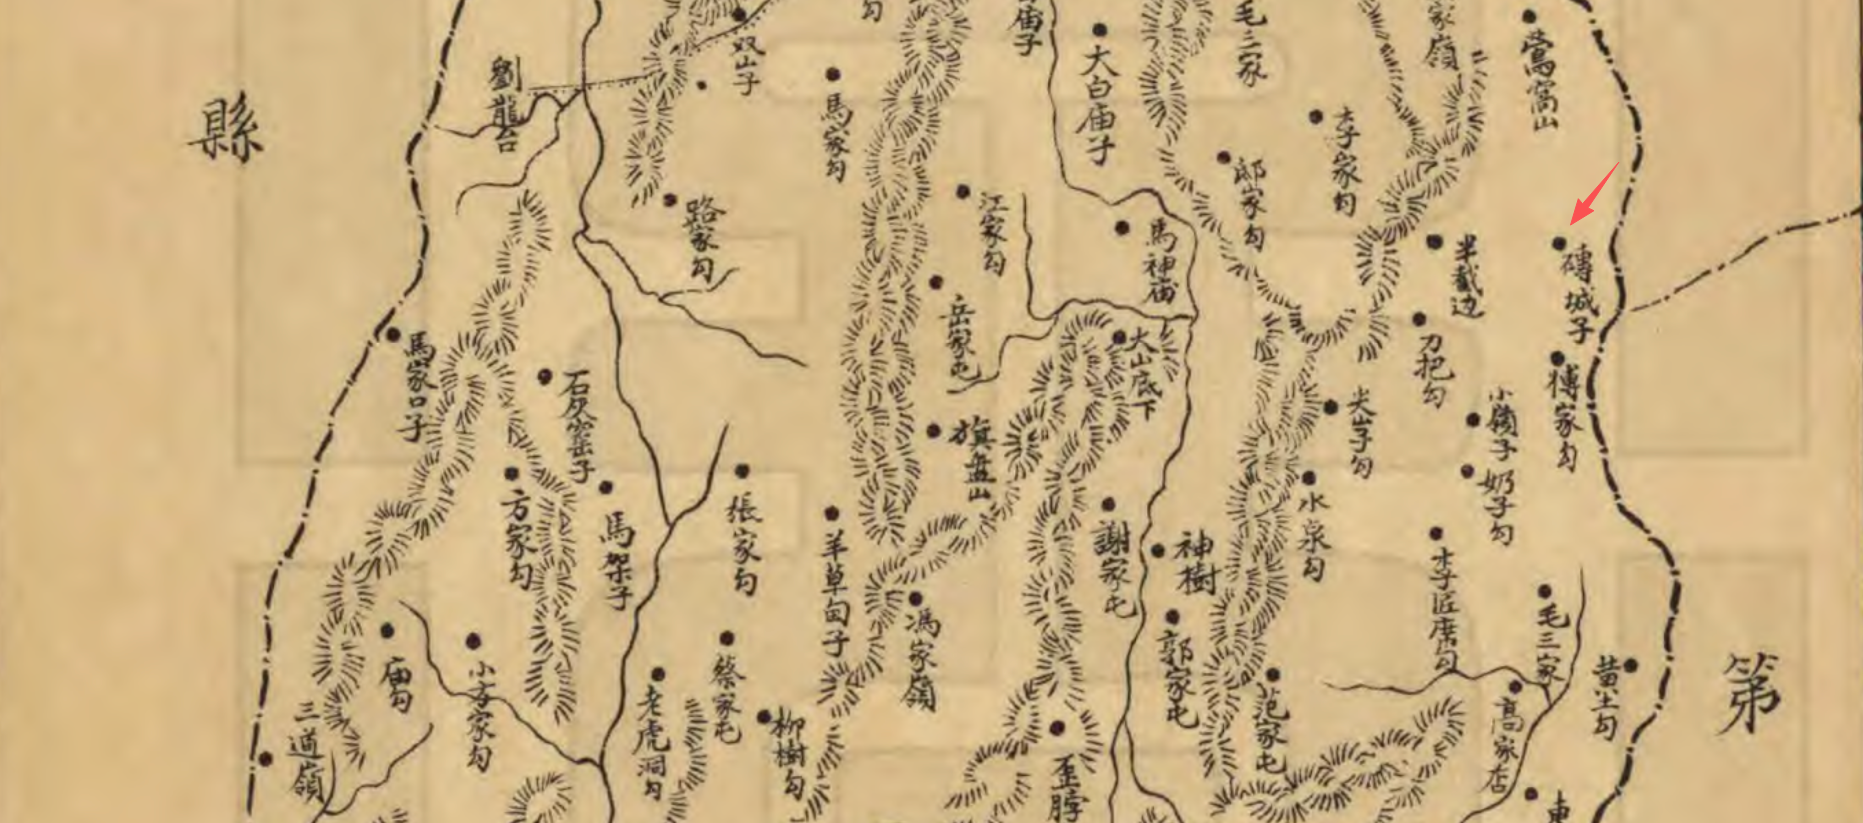 縣
劉龍台
双山子
勾
馬家勾
庙子
大白庙子
毛三家
家嶺
鶯窩山
路家勾
江家勾
馬神庙
邸家勾
李家勾
半截边
磚城子
馬家口子
石灰窑子
岳家屯
大山底下
刀把勾
小嶺子
奶子勾
方家勾
馬架子
張家勾
羊草甸子
旗盘山
謝家屯
神樹
水泉勾
李匠唐勾
毛三家
庙勾
小方家勾
蔡家屯
老虎洞勾
柳樹勾
馮家嶺
郭家屯
范家屯
高家店
黄土勾
第
三道嶺
歪脖
東